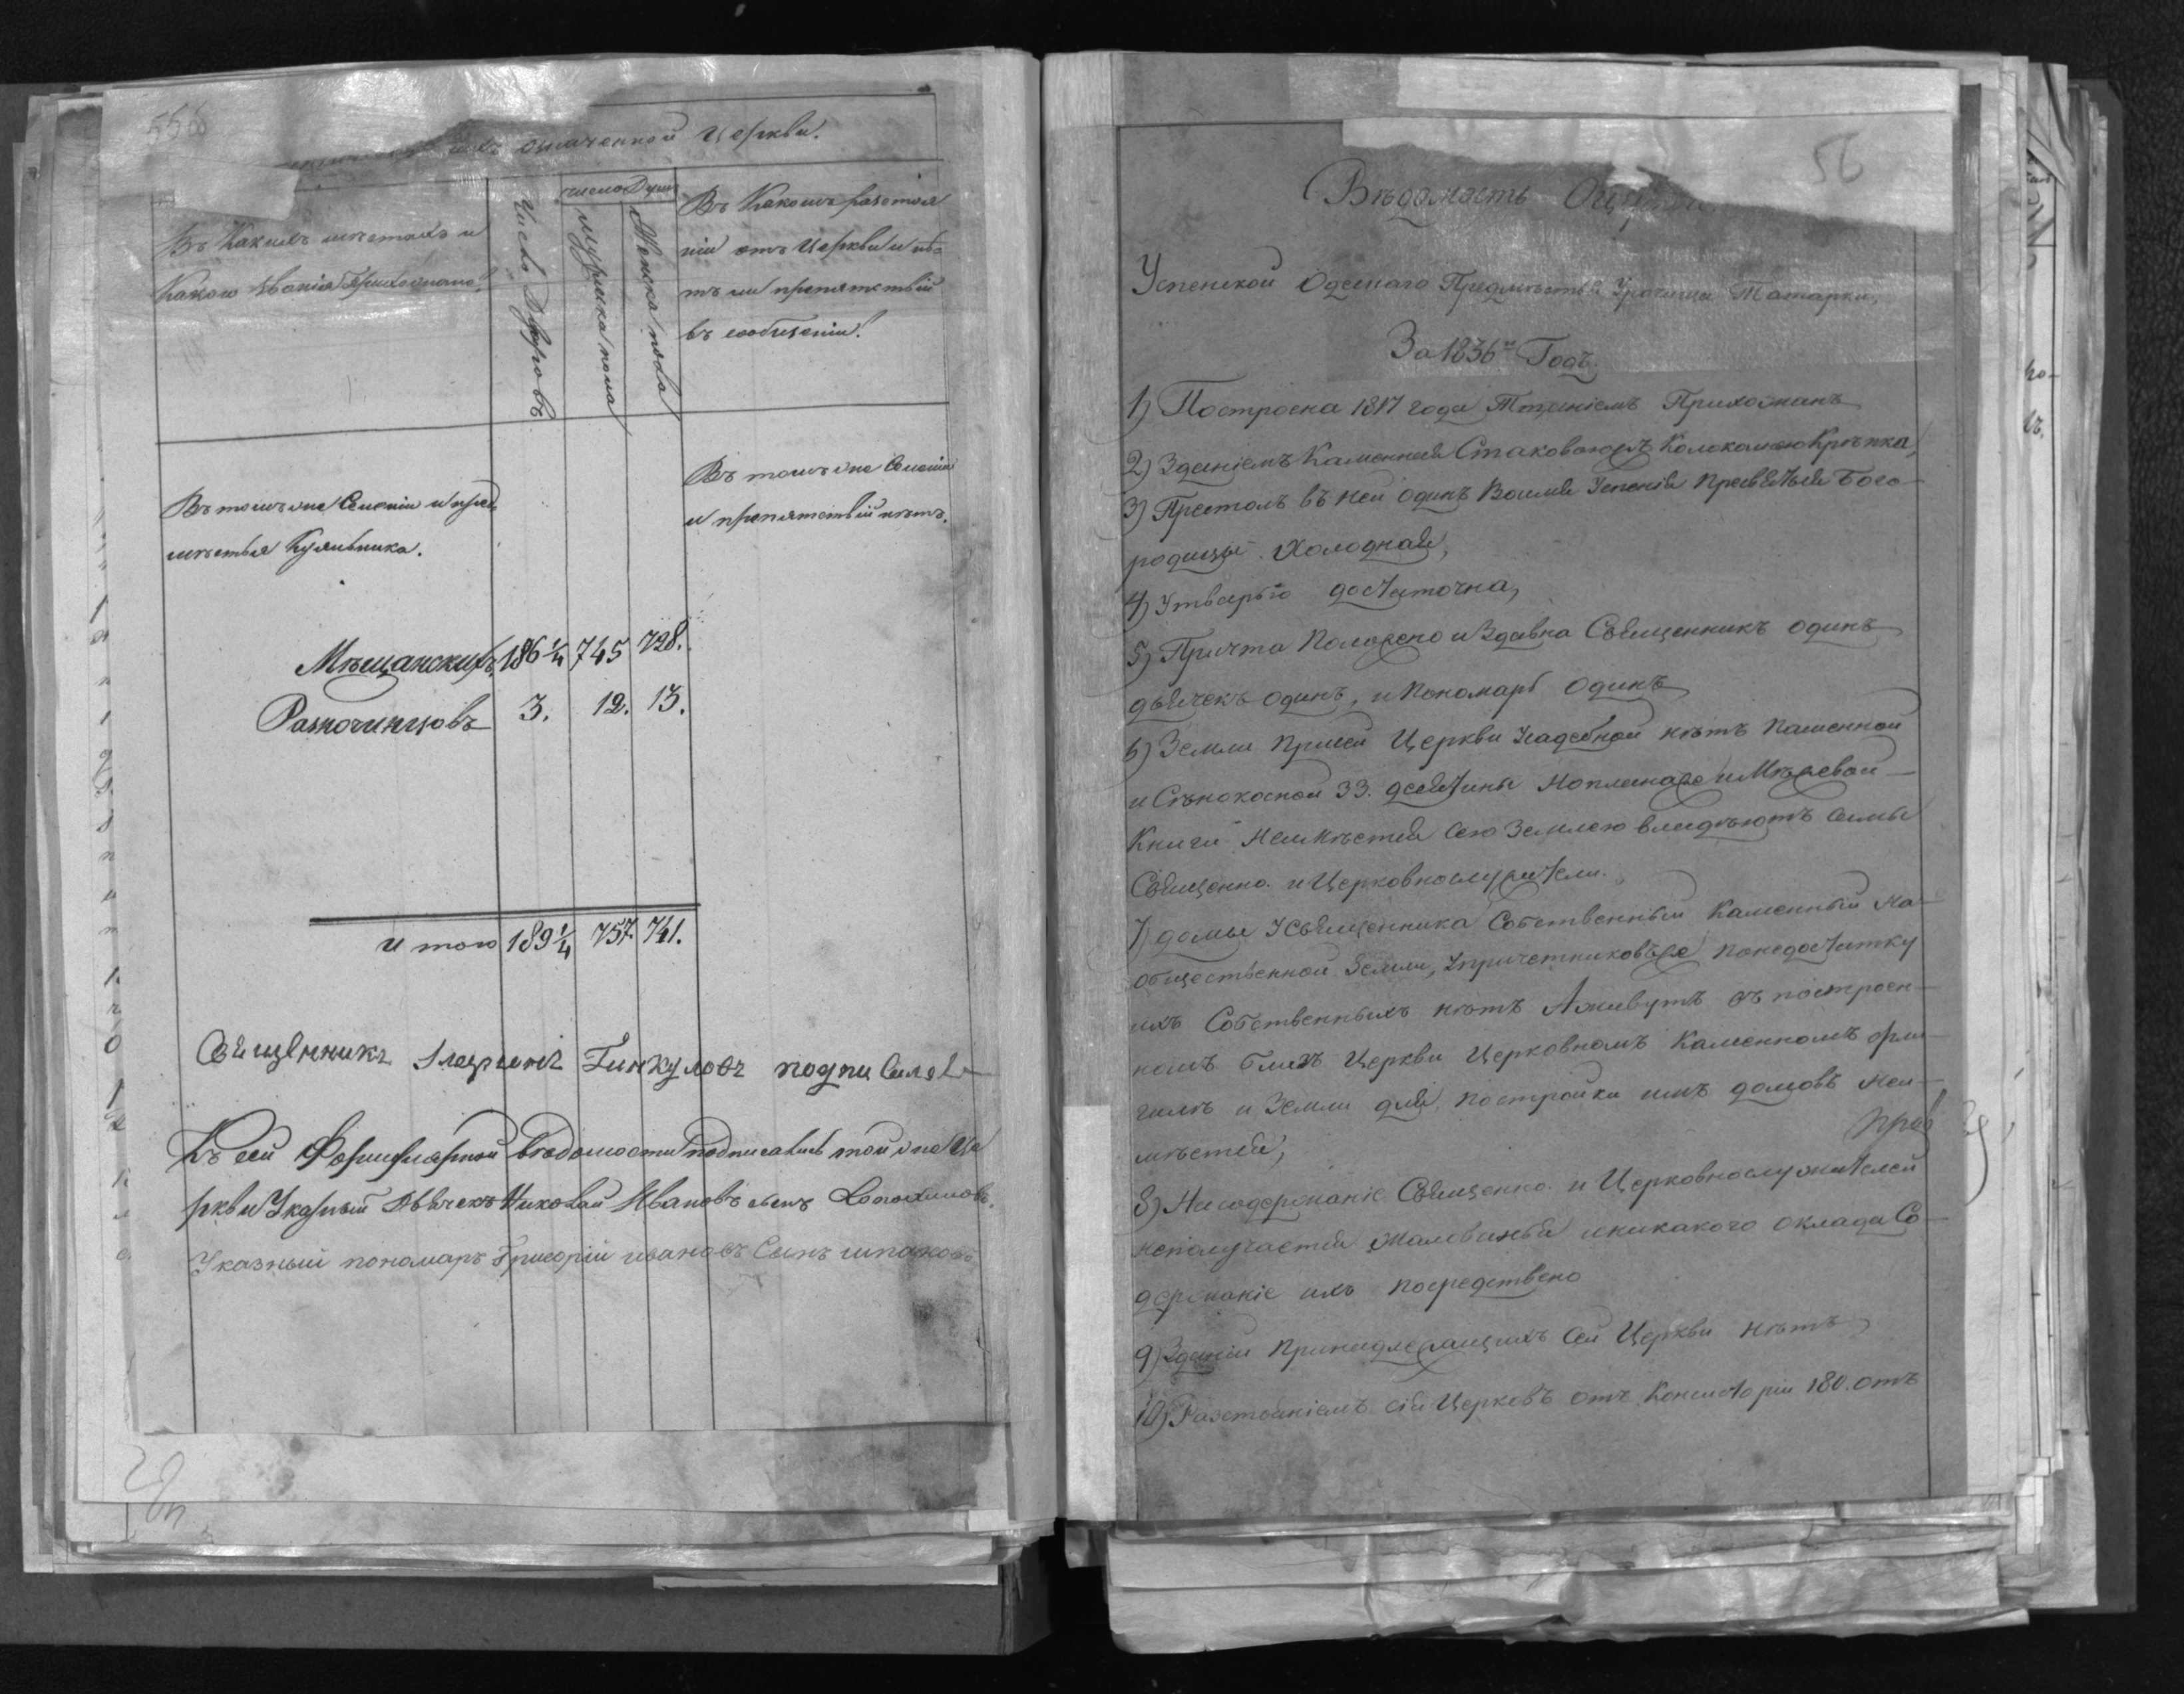 556
означенной Церкви.
Въ Какихъ местахъ и
Какого Звания Прихожане?
Число Дворовъ
число Душъ
Мужеска пола
Женска пола
Въ Какомъ разстоя
ніи отъ Церкви и нѣ
тъ ли препятствій
въ сообщеніи?
Въ томъ же Селеніи и пред
мѣстья Куяльника.
Въ томъ же Селеніи
и препятствій нѣтъ.
Мѣщанскихъ 186 1/4 745 728.
Разночинцовъ 3. 12. 13.
Итого 189 1/4 757. 741.
Священникъ Гинкуловъ подписался
Къ сей Формулярной вѣдомости подписались той же Це
ркви Указный Дьячекъ Николай Ивановъ сынъ
Указный пономарь Григорій Ивановъ Сынъ
56
Вѣдомость О Церкви
Успенской Одескаго Предмѣстья Урочища Татарки,
За 1836й Годъ.
1) Построена 1817 года Тщаніемъ Прихожанъ
2) Зданіемъ Каменная Стаковоюжъ Колокольнею Крѣпка,
3) Престолъ въ ней одинъ Воимя Успенія Пресвятыя Бого-
родицы Холодная,
4) Утварью достаточна,
5) Причта Положено издавна Священникъ одинъ
дьячекъ одинъ, и Пономарь Одинъ
6) Земли Присей Церкви Усадебной нѣтъ Пашенной
и Сѣнокосной 33. десятины Ноплана и Межевой
Книги Неимѣется Сею Землею владѣютъ Сами
Священно. и Церковнослужители.
7) домы У Священника Собственный Каменный на
общественной Земли, Упричетниковъже Понедостатку
ихъ Собственныхъ нѣтъ Аживутъ въ построен-
номъ близъ Церкви Церковномъ Каменномъ фли-
гилѣ и Земли для постройки имъ домовъ Неи-
мѣется,
8) На содержаніе Священно. и Церковнослужителей
неполучается Жалованья иникакого оклада Со-
держаніе ихъ посредствено
9) Зданій Принадлежащихъ Сей Церкви нѣтъ
10) Разстояніемъ сія Церковъ отъ Консисторіи 180. отъ